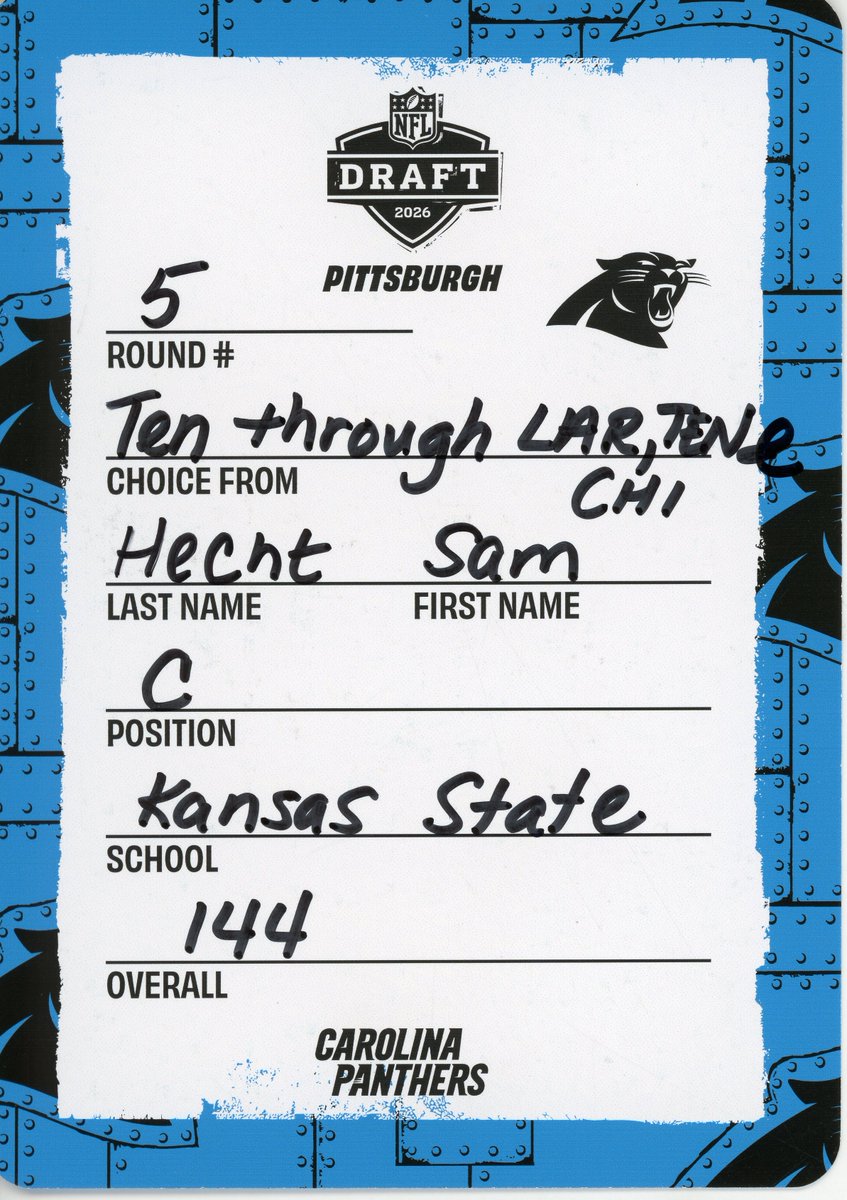 NFL
DRAFT
2026
PITTSBURGH
5
ROUND #
Ten through LAR, TEN &
CHOICE FROM
CHI
Hecht Sam
LAST NAME FIRST NAME
C
POSITION
Kansas State
SCHOOL
144
OVERALL
CAROLINA
PANTHERS